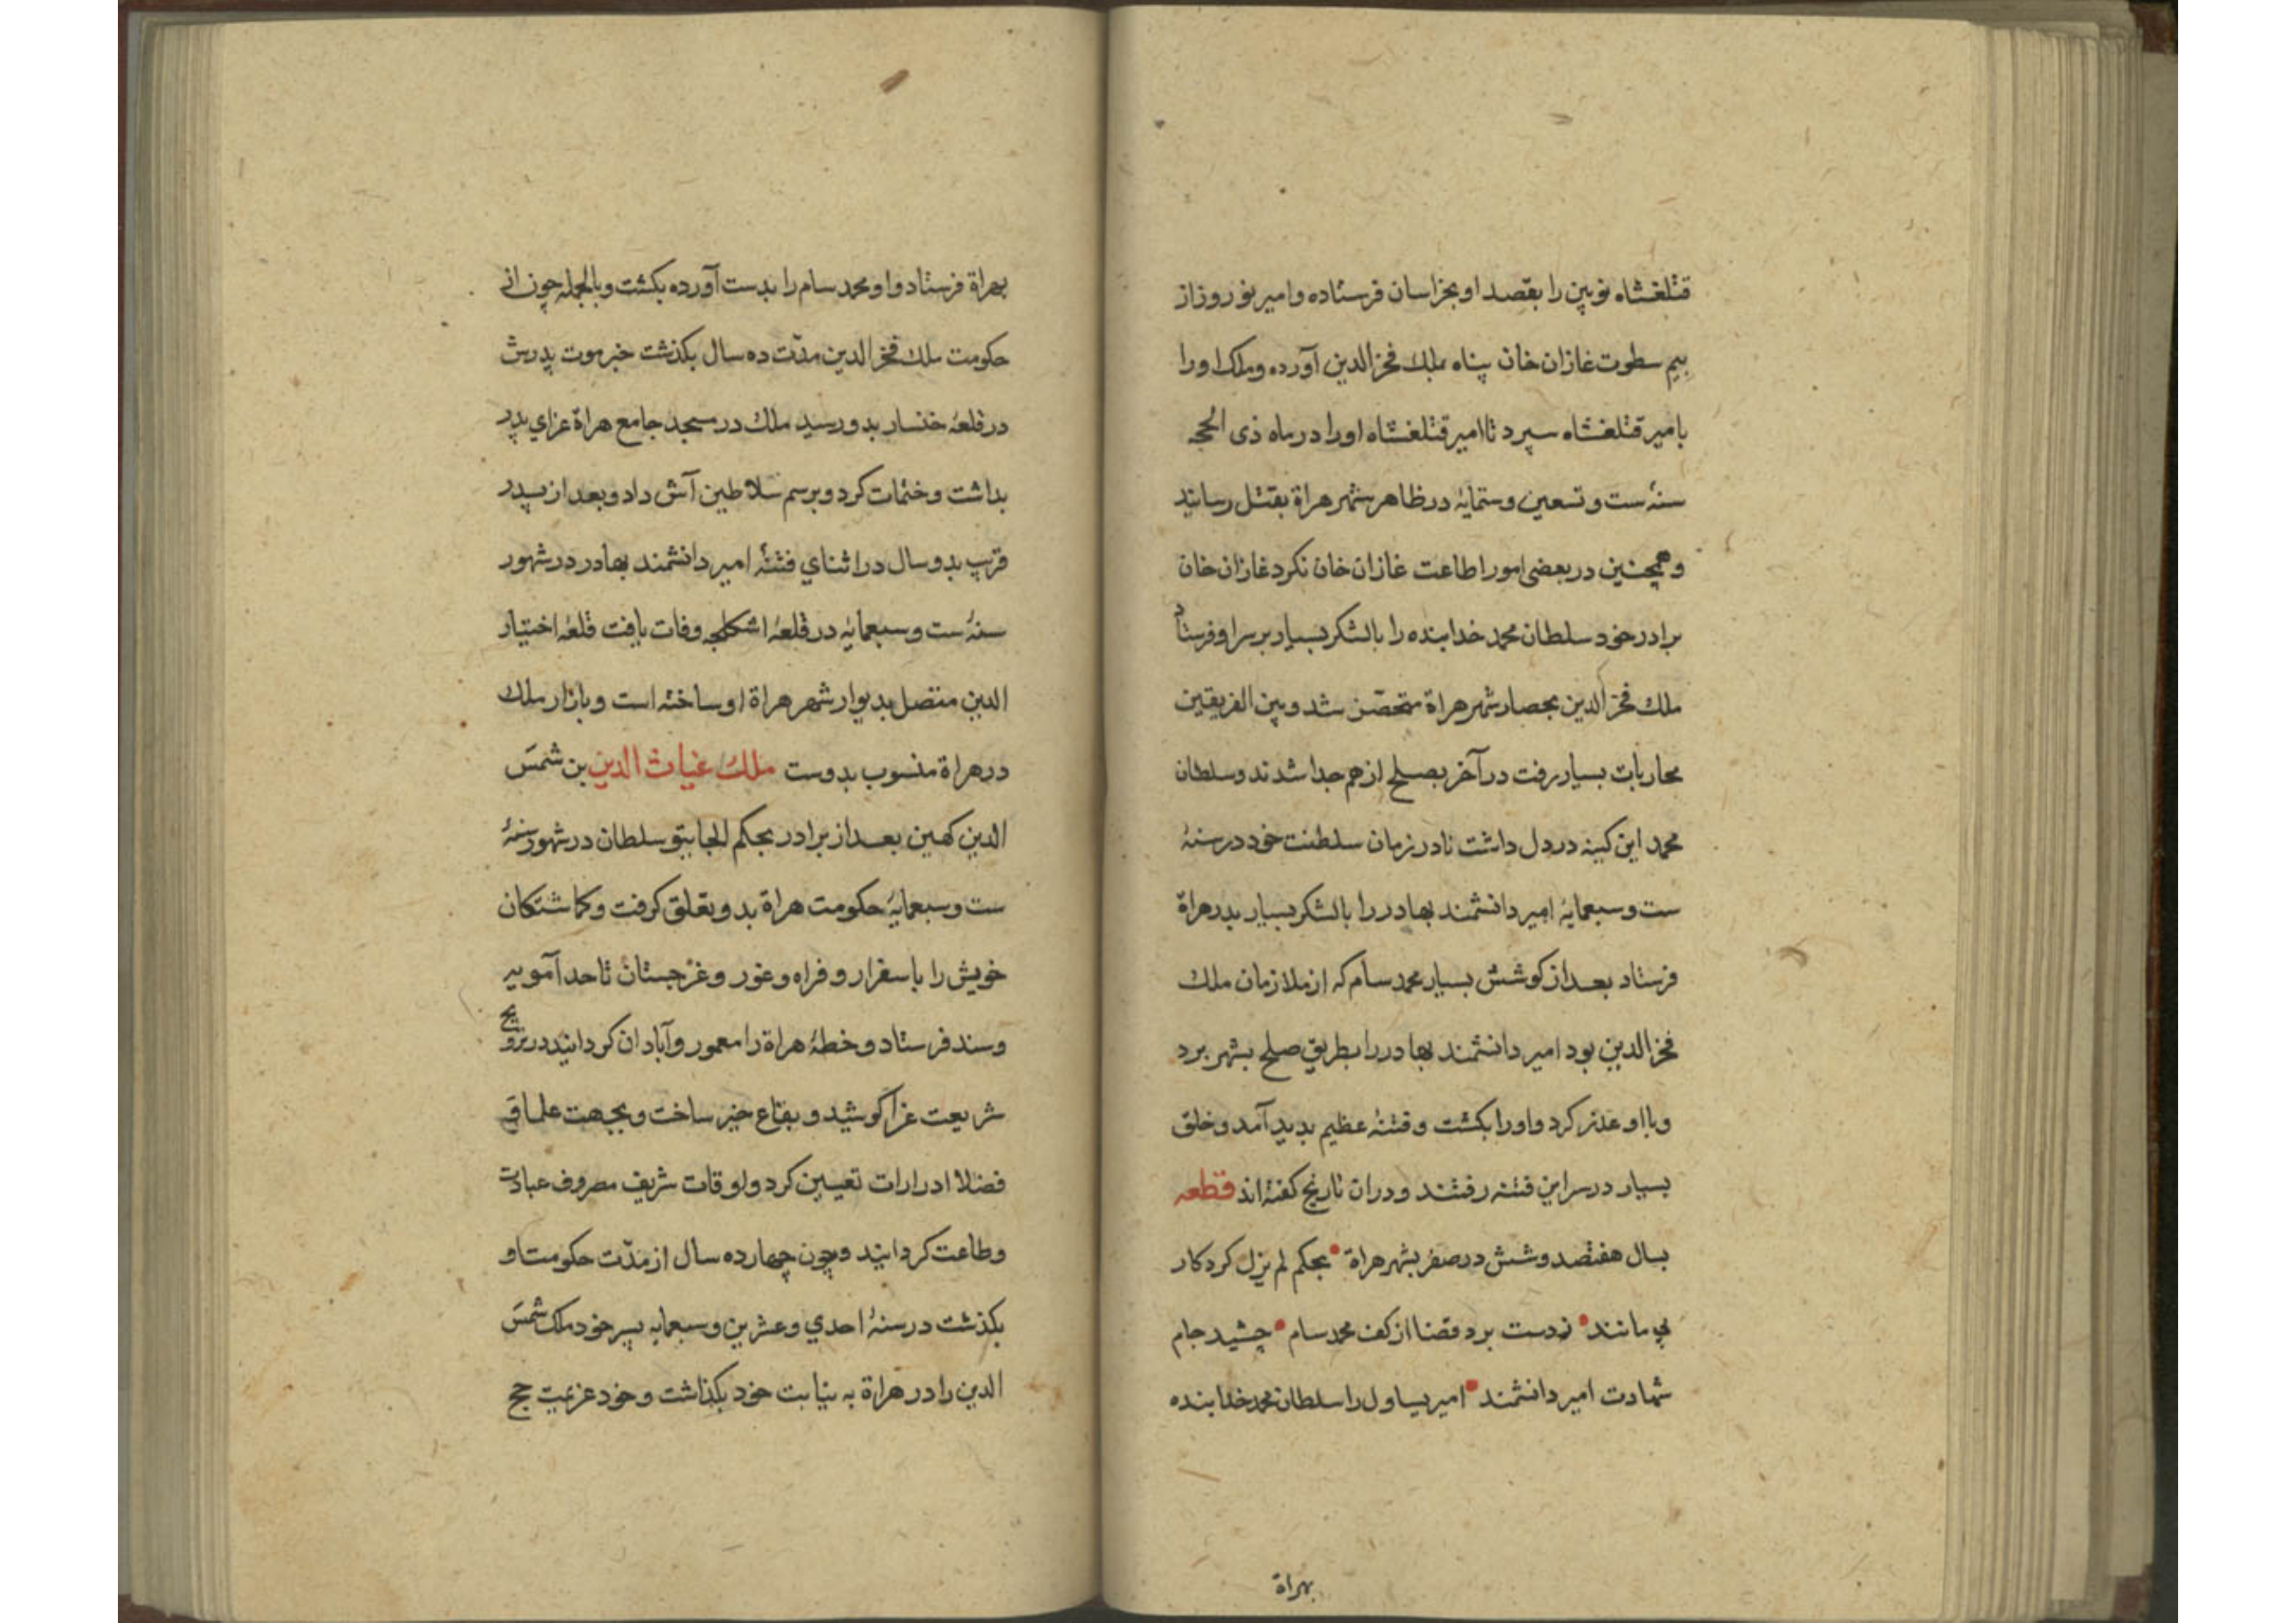 قتلغشاه نویین را بقصد او بخراسان فرستاده و امیر نوروز از
بیم سطوت غازان خان پناه بملک فخر الدین آورده و ملک او را
بامیر قتلغشاه سپرد تا امیر قتلغشاه او را در ماه ذی الحجه
سنهٔ ست و تسعین و ستمایهٔ در ظاهر شهر هراة بقتل رسانید
و همچنین در بعضی امور اطاعت غازان خان نکرد غازان خان
برادر خود سلطان محمد خدابنده را با لشکر بسیار بر سر او فرستاد
ملک فخر الدین بحصار شهر هراة متحصّن شد و بین الفریقین
محاربات بسیار رفت در آخر بصلح از هم جدا شدند و سلطان
محمد این کینه در دل داشت تا در زمان سلطنت خود در سنهٔ
ست و سبعمایهٔ امیر دانشمند بهادر را با لشکر بسیار بدر هراة
فرستاد بعد از کوشش بسیار محمد سام که از ملازمان ملک
فخر الدین بود امیر دانشمند بهادر را بطریق صلح بشهر برد
و با او عذر کرد و او را بکشت و فتنهٔ عظیم پدید آمد و خلق
بسیار در سر این فتنه رفتند و در ان تاریخ کفتهٔ اند قطعه
بسال هفتصد و شش در صفر بشهر هراة • بحکم لم یزل کردکار
بی مانند • ز دست برد قضا از کف محمد سام • چشید جام
شهادت امیر دانشمند • امیر یساول را سلطان محمد خدابنده
بهراة
بهراة فرستاد و او محمد سام را بدست آورده بکشت و بالجمله چون از
حکومت ملک فخر الدین مدّت ده سال بکذشت خبر موت پدرش
در قلعهٔ خنسار بدو رسید ملک در مسجد جامع هراة عزای پدر
بداشت و ختمات کرد و برسم سلاطین آش داد و بعد از پدر
قریب بدو سال در اثنای فتنهٔ امیر دانشمند بهادر در شهور
سنهٔ ست و سبعمایهٔ در قلعهٔ اشکلجه وفات یافت قلعهٔ اختیار
الدین متصل بدیوار شهر هراة او ساخته است و بازار ملک
در هراة منسوب بدوست ملک غیاث الدین بن شمس
الدین کهین بعد از برادر بحکم الجایتو سلطان در شهور سنهٔ
ست و سبعمایهٔ حکومت هراة بدو تعلق کرفت و کماشتکان
خویش را باسفرار و فراه و غور و غرجستان تا حد آمویه
و سند فرستاد و خطهٔ هراة را معمور و آبادان کردانید در ترویج
شریعت غرا کوشید و بقاع خیر ساخت و بجهت علما و
فضلا ادرارات تعیین کرد و اوقات شریف مصروف عبادت
و طاعت کردانید و چون چهارده سال از مدّت حکومت او
بکذشت در سنهٔ احدی و عشرین و سبعمایه پسر خود ملک شمس
الدین را در هراة به نیابت خود بکذاشت و خود عزیمت حج